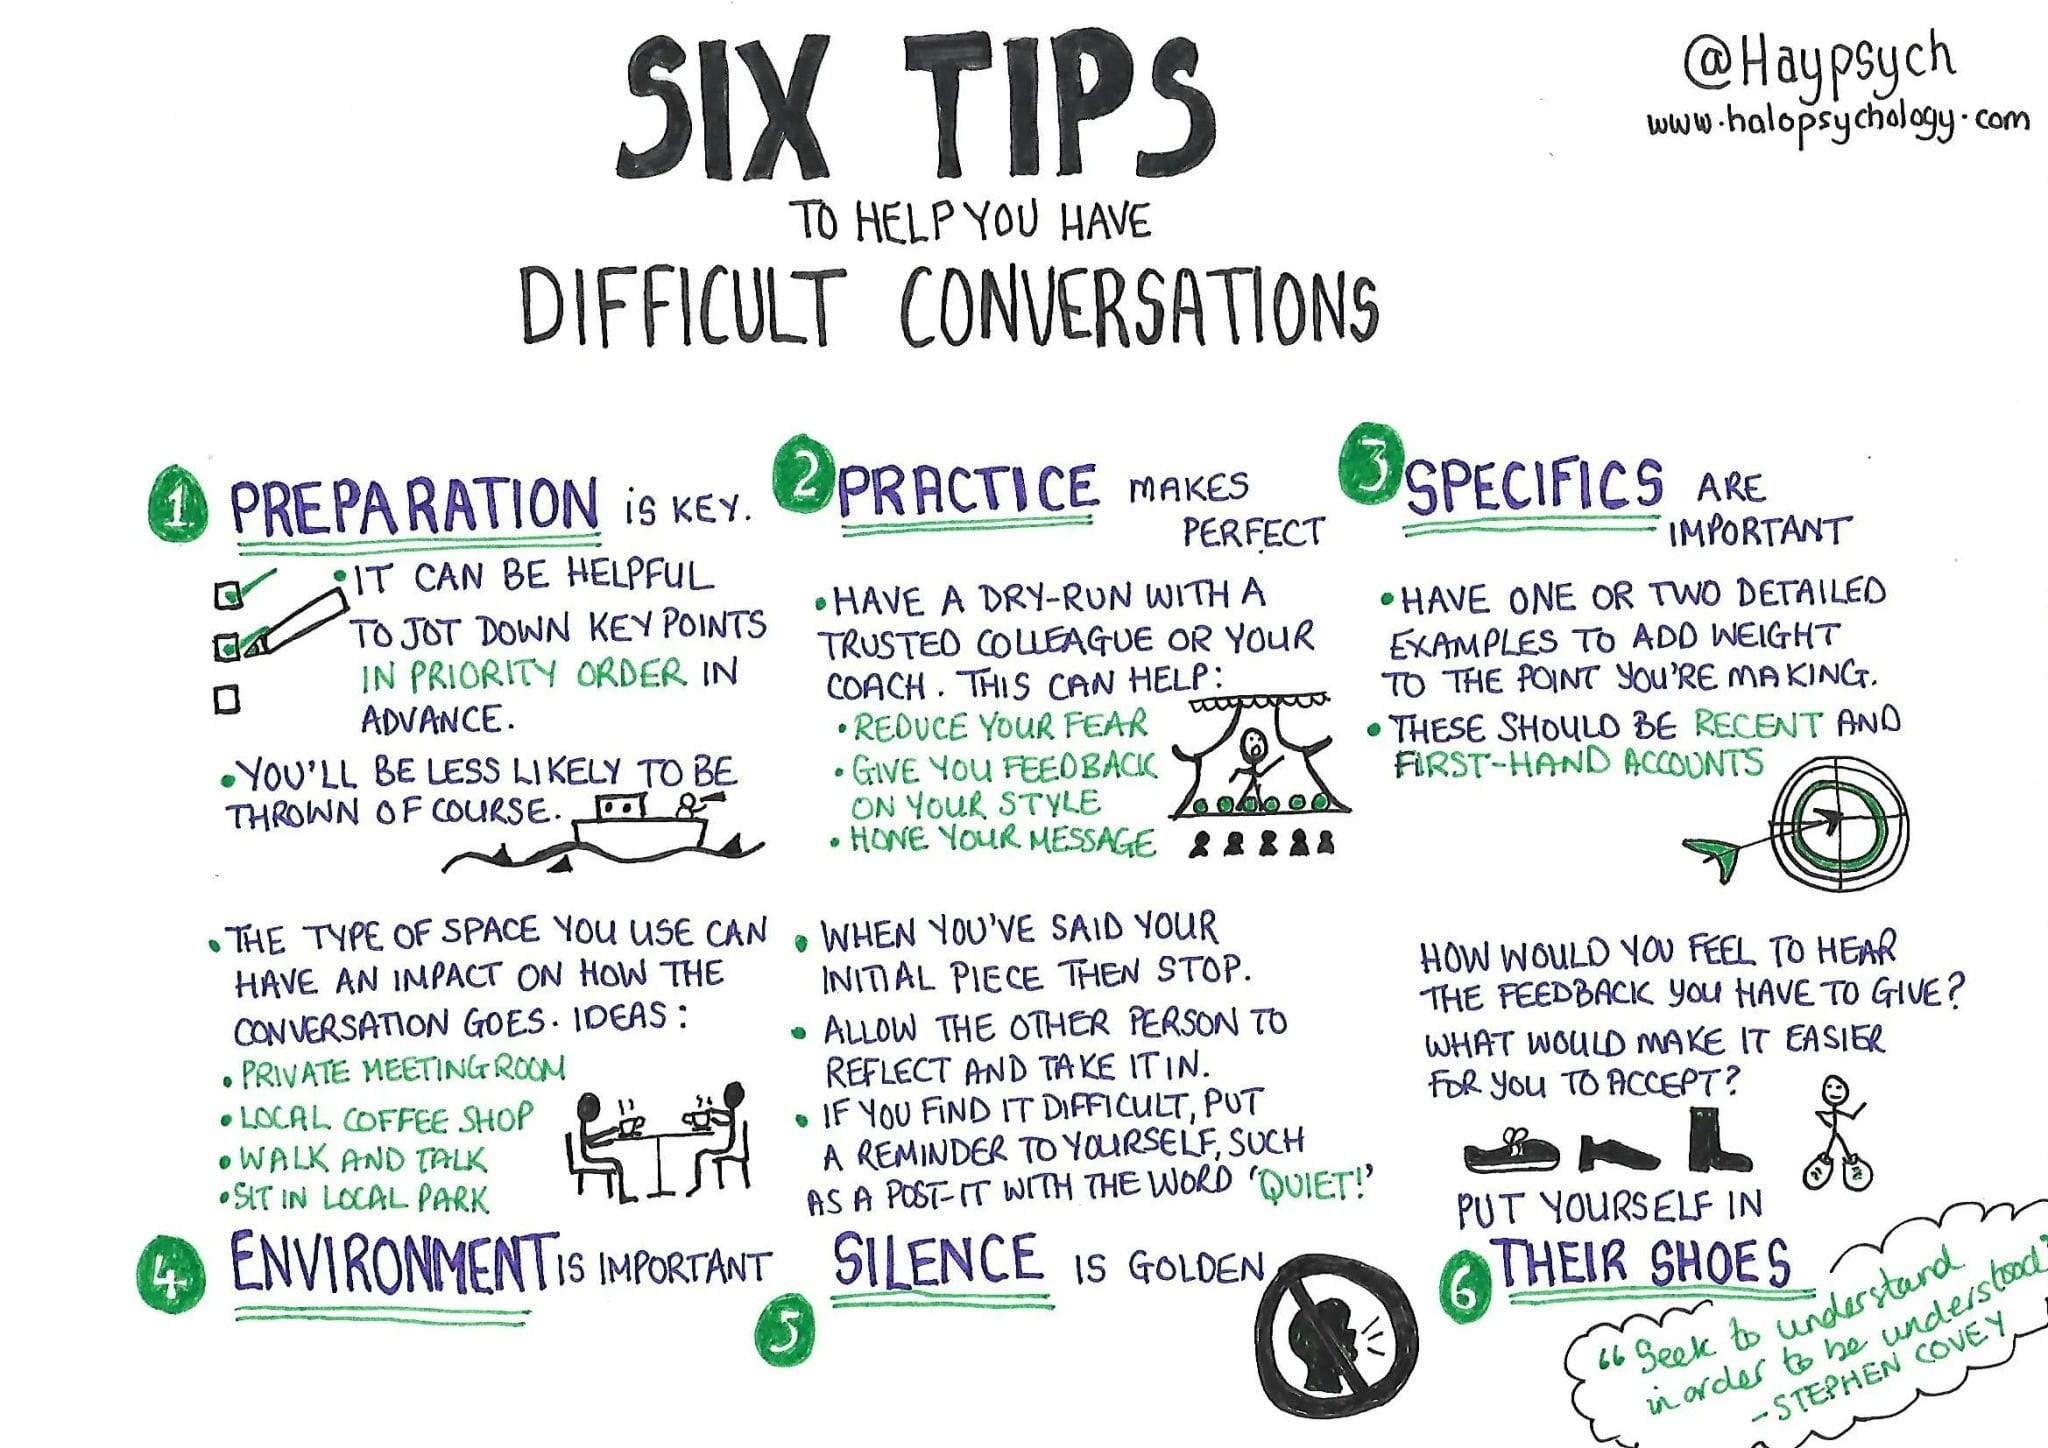 SIX TIPS
TO HELP YOU HAVE
DIFFICULT CONVERSATIONS
@Haypsych
www.halopsychology.com
1 PREPARATION IS KEY.
• IT CAN BE HELPFUL
TO JOT DOWN KEY POINTS
IN PRIORITY ORDER IN
ADVANCE.
• YOU'LL BE LESS LIKELY TO BE
THROWN OF COURSE.
2 PRACTICE MAKES
PERFECT
• HAVE A DRY-RUN WITH A
TRUSTED COLLEAGUE OR YOUR
COACH. THIS CAN HELP:
• REDUCE YOUR FEAR
• GIVE YOU FEEDBACK
ON YOUR STYLE
• HONE YOUR MESSAGE
3 SPECIFICS ARE
IMPORTANT
• HAVE ONE OR TWO DETAILED
EXAMPLES TO ADD WEIGHT
TO THE POINT YOU'RE MAKING.
• THESE SHOULD BE RECENT AND
FIRST-HAND ACCOUNTS
• THE TYPE OF SPACE YOU USE CAN
HAVE AN IMPACT ON HOW THE
CONVERSATION GOES. IDEAS:
• PRIVATE MEETING ROOM
• LOCAL COFFEE SHOP
• WALK AND TALK
• SIT IN LOCAL PARK
4 ENVIRONMENT IS IMPORTANT
• WHEN YOU'VE SAID YOUR
INITIAL PIECE THEN STOP.
• ALLOW THE OTHER PERSON TO
REFLECT AND TAKE IT IN.
• IF YOU FIND IT DIFFICULT, PUT
A REMINDER TO YOURSELF, SUCH
AS A POST-IT WITH THE WORD 'QUIET!'
5 SILENCE IS GOLDEN
HOW WOULD YOU FEEL TO HEAR
THE FEEDBACK YOU HAVE TO GIVE?
WHAT WOULD MAKE IT EASIER
FOR YOU TO ACCEPT?
PUT YOURSELF IN
6 THEIR SHOES
"Seek to understand
in order to be understood"
- STEPHEN COVEY